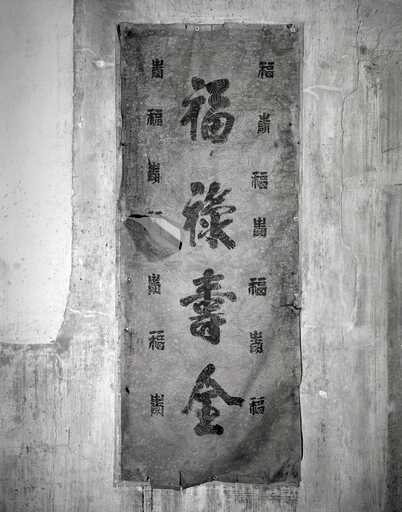 福壽福壽福壽福
福祿壽全
壽福壽壽福壽